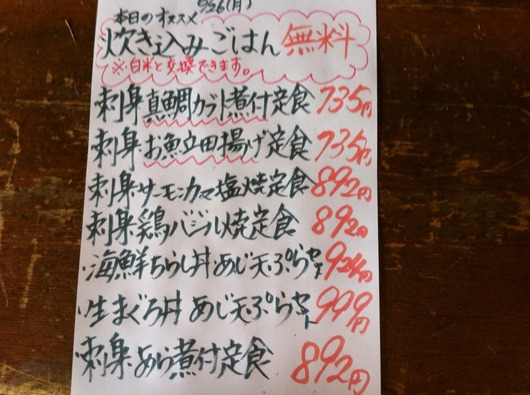 9/26(月)
本日のオススメ
炊き込みごはん 無料
※白米と交換できます。
刺身・真鯛カブト煮付定食 735円
刺身・お魚立田揚げ定食 735円
刺身・サーモンカマ塩焼定食 892円
刺身・鶏バジル焼定食 892円
・海鮮ちらし丼 めじ天ぷら 924円
・生まぐろ丼 めじ天ぷら 999円
刺身・あら煮付定食 892円